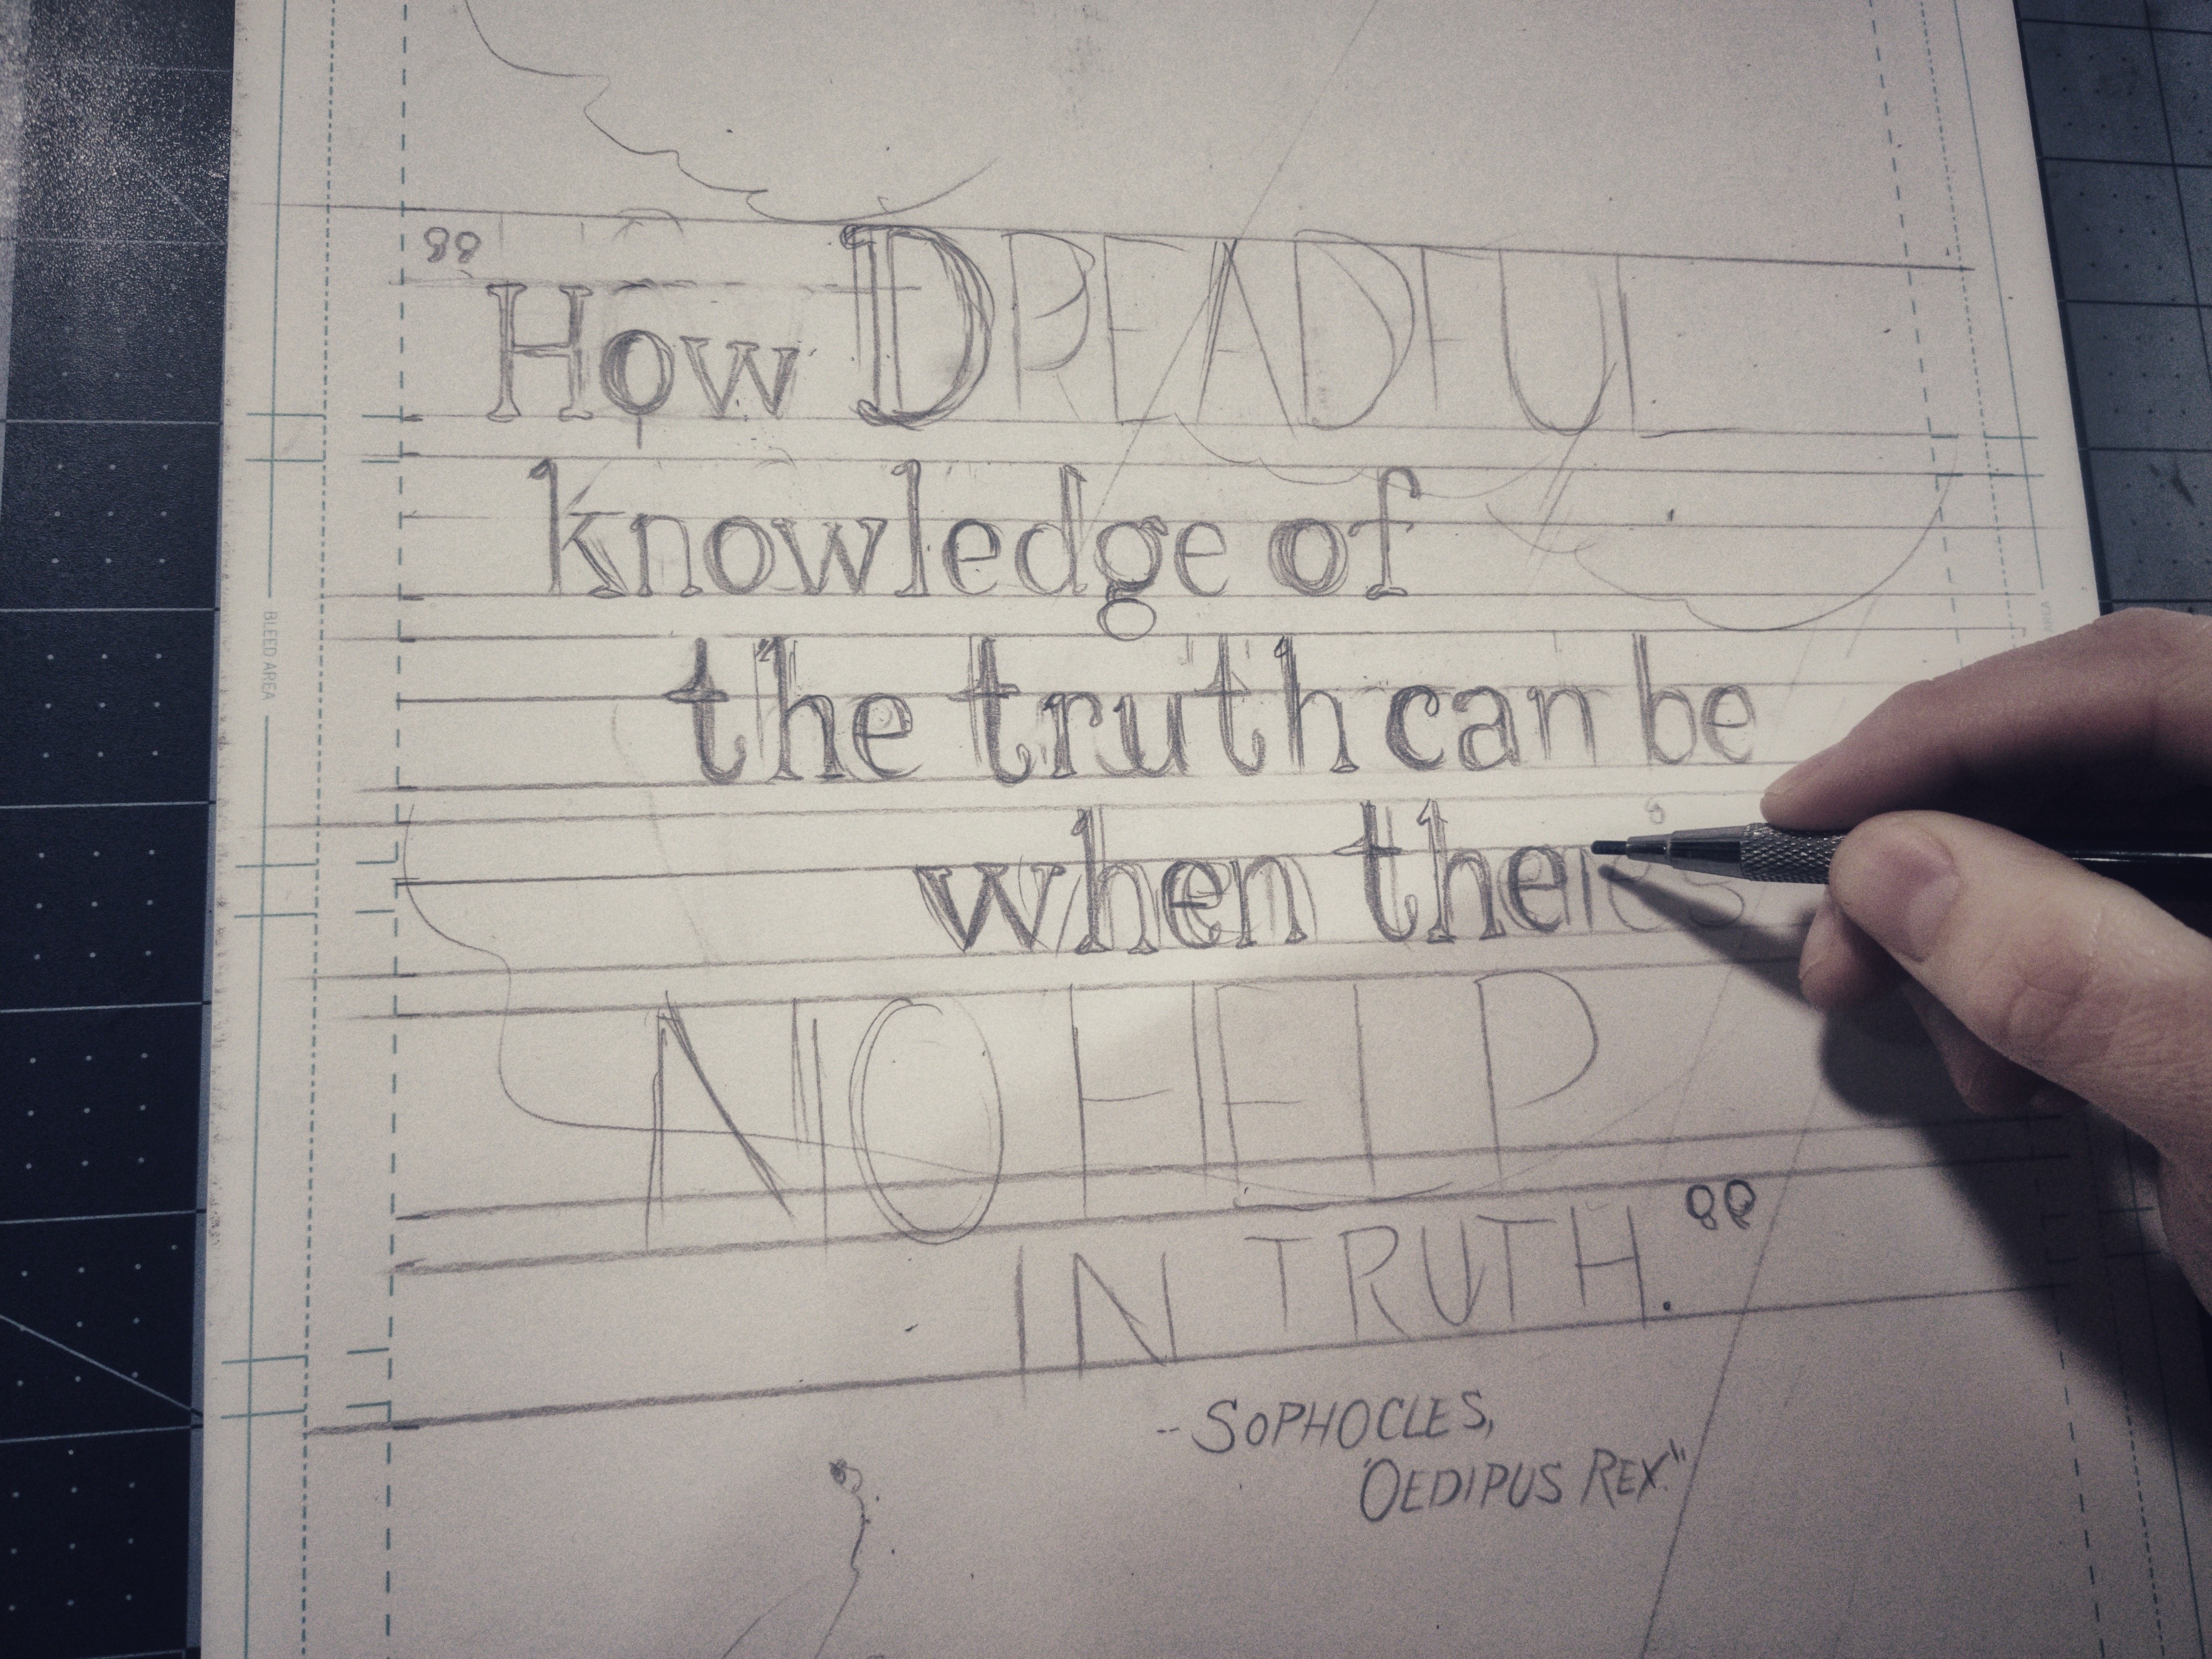 "How DREADFUL
knowledge of
the truth can be
when there's
NO HELP
IN TRUTH."
--SOPHOCLES,
"OEDIPUS REX."
BLEED AREA